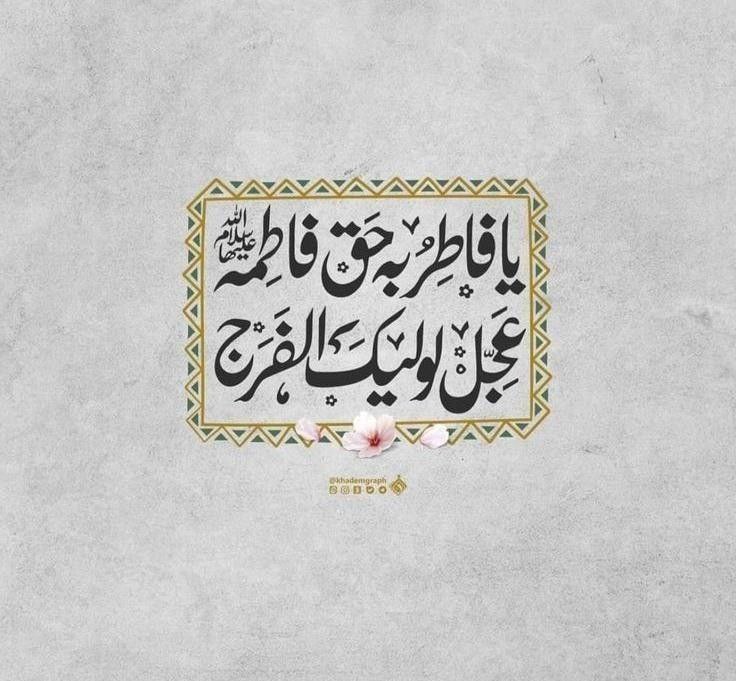 یا فاطِرُ به حَق فاطِمه سلام الله علیها
عَجِّل لولیکَ الفَرَج
@khademgraph